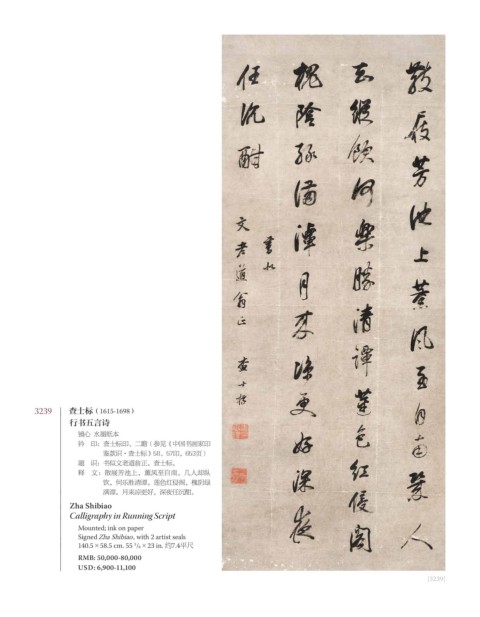 散屐芳池上薰风至自南几人
忘纵饮何乐胜清谭莲色红侵阁
槐阴绿满潭月来凉更好深夜
任沉酣
书似
文老道翁正 查士标
3239
查士标（1615-1698）
行书五言诗
镜心 水墨纸本
钤 印：查士标印、二瞻（参见《中国书画家印
鉴款识·查士标》58、57印，652页）
题 识：书似文老道翁正。查士标。
释 文：散屐芳池上，薰风至自南。几人却纵
饮，何乐胜清谭。莲色红侵阁，槐阴绿
满潭。月来凉更好，深夜任沉酣。
Zha Shibiao
Calligraphy in Running Script
Mounted; ink on paper
Signed Zha Shibiao, with 2 artist seals
140.5 × 58.5 cm. 55 1/4 × 23 in. 约7.4平尺
RMB: 50,000-80,000
USD: 6,900-11,100
[3239]